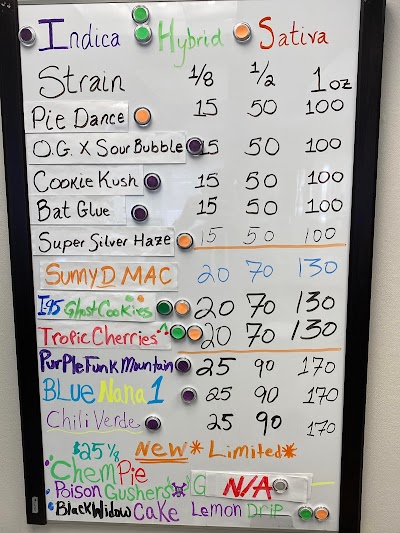 Indica Hybrid Sativa
Strain 1/8 1/2 1oz
Pie Dance 15 50 100
O.G. X Sour Bubble 15 50 100
Cookie Kush 15 50 100
Bat Glue 15 50 100
Super Silver Haze 15 50 100
Sunny D MAC 20 70 130
I95 Ghost Cookies 20 70 130
Tropic Cherries 20 70 130
Purple Funk Mountain 25 90 170
Blue Nana 1 25 90 170
Chili Verde 25 90 170
$25 1/8 New *Limited*
ChemPie
Poison Gushers G N/A
Black Widow Cake Lemon Drip